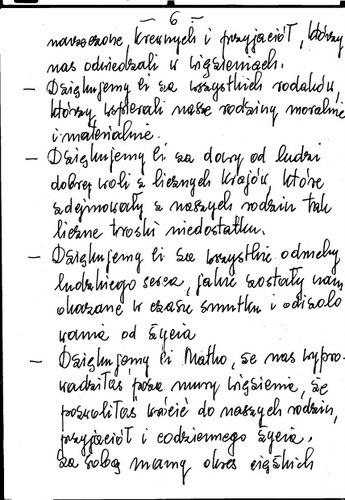 — 6 —
narzeczone, krewnych i przyjaciół, którzy
nas odwiedzali w więzieniach.
— Dziękujemy Ci za wszystkich rodaków,
którzy wspierali nasze rodziny moralnie
i materialnie.
— Dziękujemy Ci za dary od ludzi
dobrej woli z licznych krajów, które
zdejmowały z naszych rodzin tak
liczne troski niedostatku.
— Dziękujemy Ci za wszystkie odruchy
ludzkiego serca, jakie zostały nam
okazane w czasie smutku i odizolo
wania od życia
— Dziękujemy Ci Matko, że nas wypro-
wadziłaś poza mury więzienia, że
pozwoliłaś wrócić do naszych rodzin,
przyjaciół i codziennego życia.
Za sobą mamy okres ciężkich